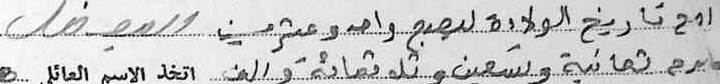 تاريخ الولادة ليصبح واحد وعشرين
ثمانية وتسعين وثلاثمائة والف اتخذ الاسم العائلي